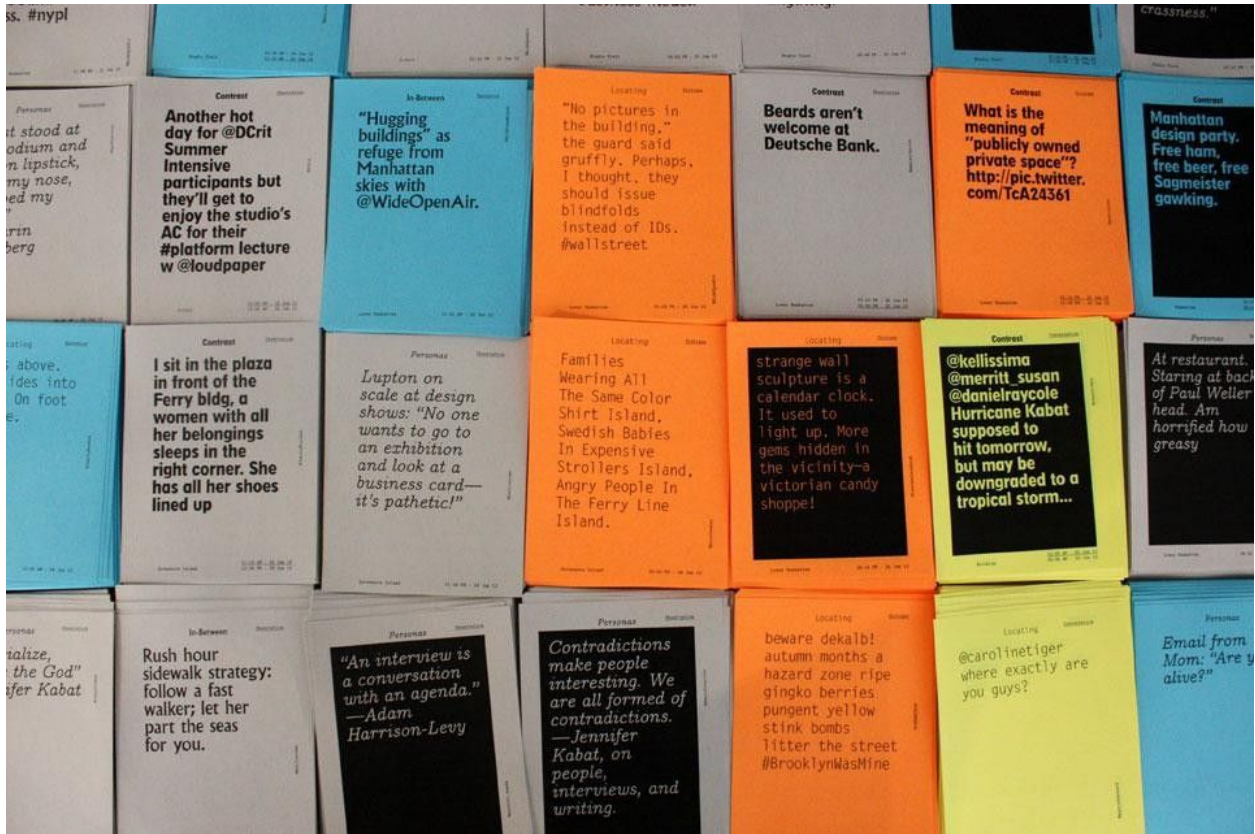 ss. #nypl
crassness."
Personas
t stood at
odium and
n lipstick,
my nose,
ped my
rin
berg
Contrast
Another hot
day for @DCrit
Summer
Intensive
participants but
they'll get to
enjoy the studio's
AC for their
#platform lecture
w @loudpaper
In-Between
"Hugging
buildings" as
refuge from
Manhattan
skies with
@WideOpenAir.
Locating
"No pictures in
the building,"
the guard said
gruffly. Perhaps,
I thought, they
should issue
blindfolds
instead of IDs.
#wallstreet
Lower Manhattan
Contrast
Beards aren't
welcome at
Deutsche Bank.
Lower Manhattan
Contrast
What is the
meaning of
"publicly owned
private space"?
http://pic.twitter.
com/TcA24361
Lower Manhattan
Contrast
Manhattan
design party.
Free ham,
free beer, free
Sagmeister
gawking.
ocating
s above.
ides into
On foot
e.
Contrast
I sit in the plaza
in front of the
Ferry bldg, a
women with all
her belongings
sleeps in the
right corner. She
has all her shoes
lined up
Governors Island
Personas
Lupton on
scale at design
shows: "No one
wants to go to
an exhibition
and look at a
business card—
it's pathetic!"
Governors Island
Locating
Families
Wearing All
The Same Color
Shirt Island,
Swedish Babies
In Expensive
Strollers Island,
Angry People In
The Ferry Line
Island.
Governors Island
Locating
strange wall
sculpture is a
calendar clock.
It used to
light up. More
gems hidden in
the vicinity—a
victorian candy
shoppe!
Lower Manhattan
Contrast
@kellissima
@merritt_susan
@danielraycole
Hurricane Kabat
supposed to
hit tomorrow,
but may be
downgraded to a
tropical storm...
Personas
At restaurant.
Staring at back
of Paul Weller
head. Am
horrified how
greasy
ersonas
ialize,
the God"
ifer Kabat
In-Between
Rush hour
sidewalk strategy:
follow a fast
walker; let her
part the seas
for you.
Personas
"An interview is
a conversation
with an agenda."
—Adam
Harrison-Levy
Personas
Contradictions
make people
interesting. We
are all formed of
contradictions.
—Jennifer
Kabat, on
people,
interviews, and
writing.
Locating
beware dekalb!
autumn months a
hazard zone ripe
gingko berries
pungent yellow
stink bombs
litter the street
#BrooklynWasMine
Locating
@carolinetiger
where exactly are
you guys?
Email from
Mom: "Are y
alive?"